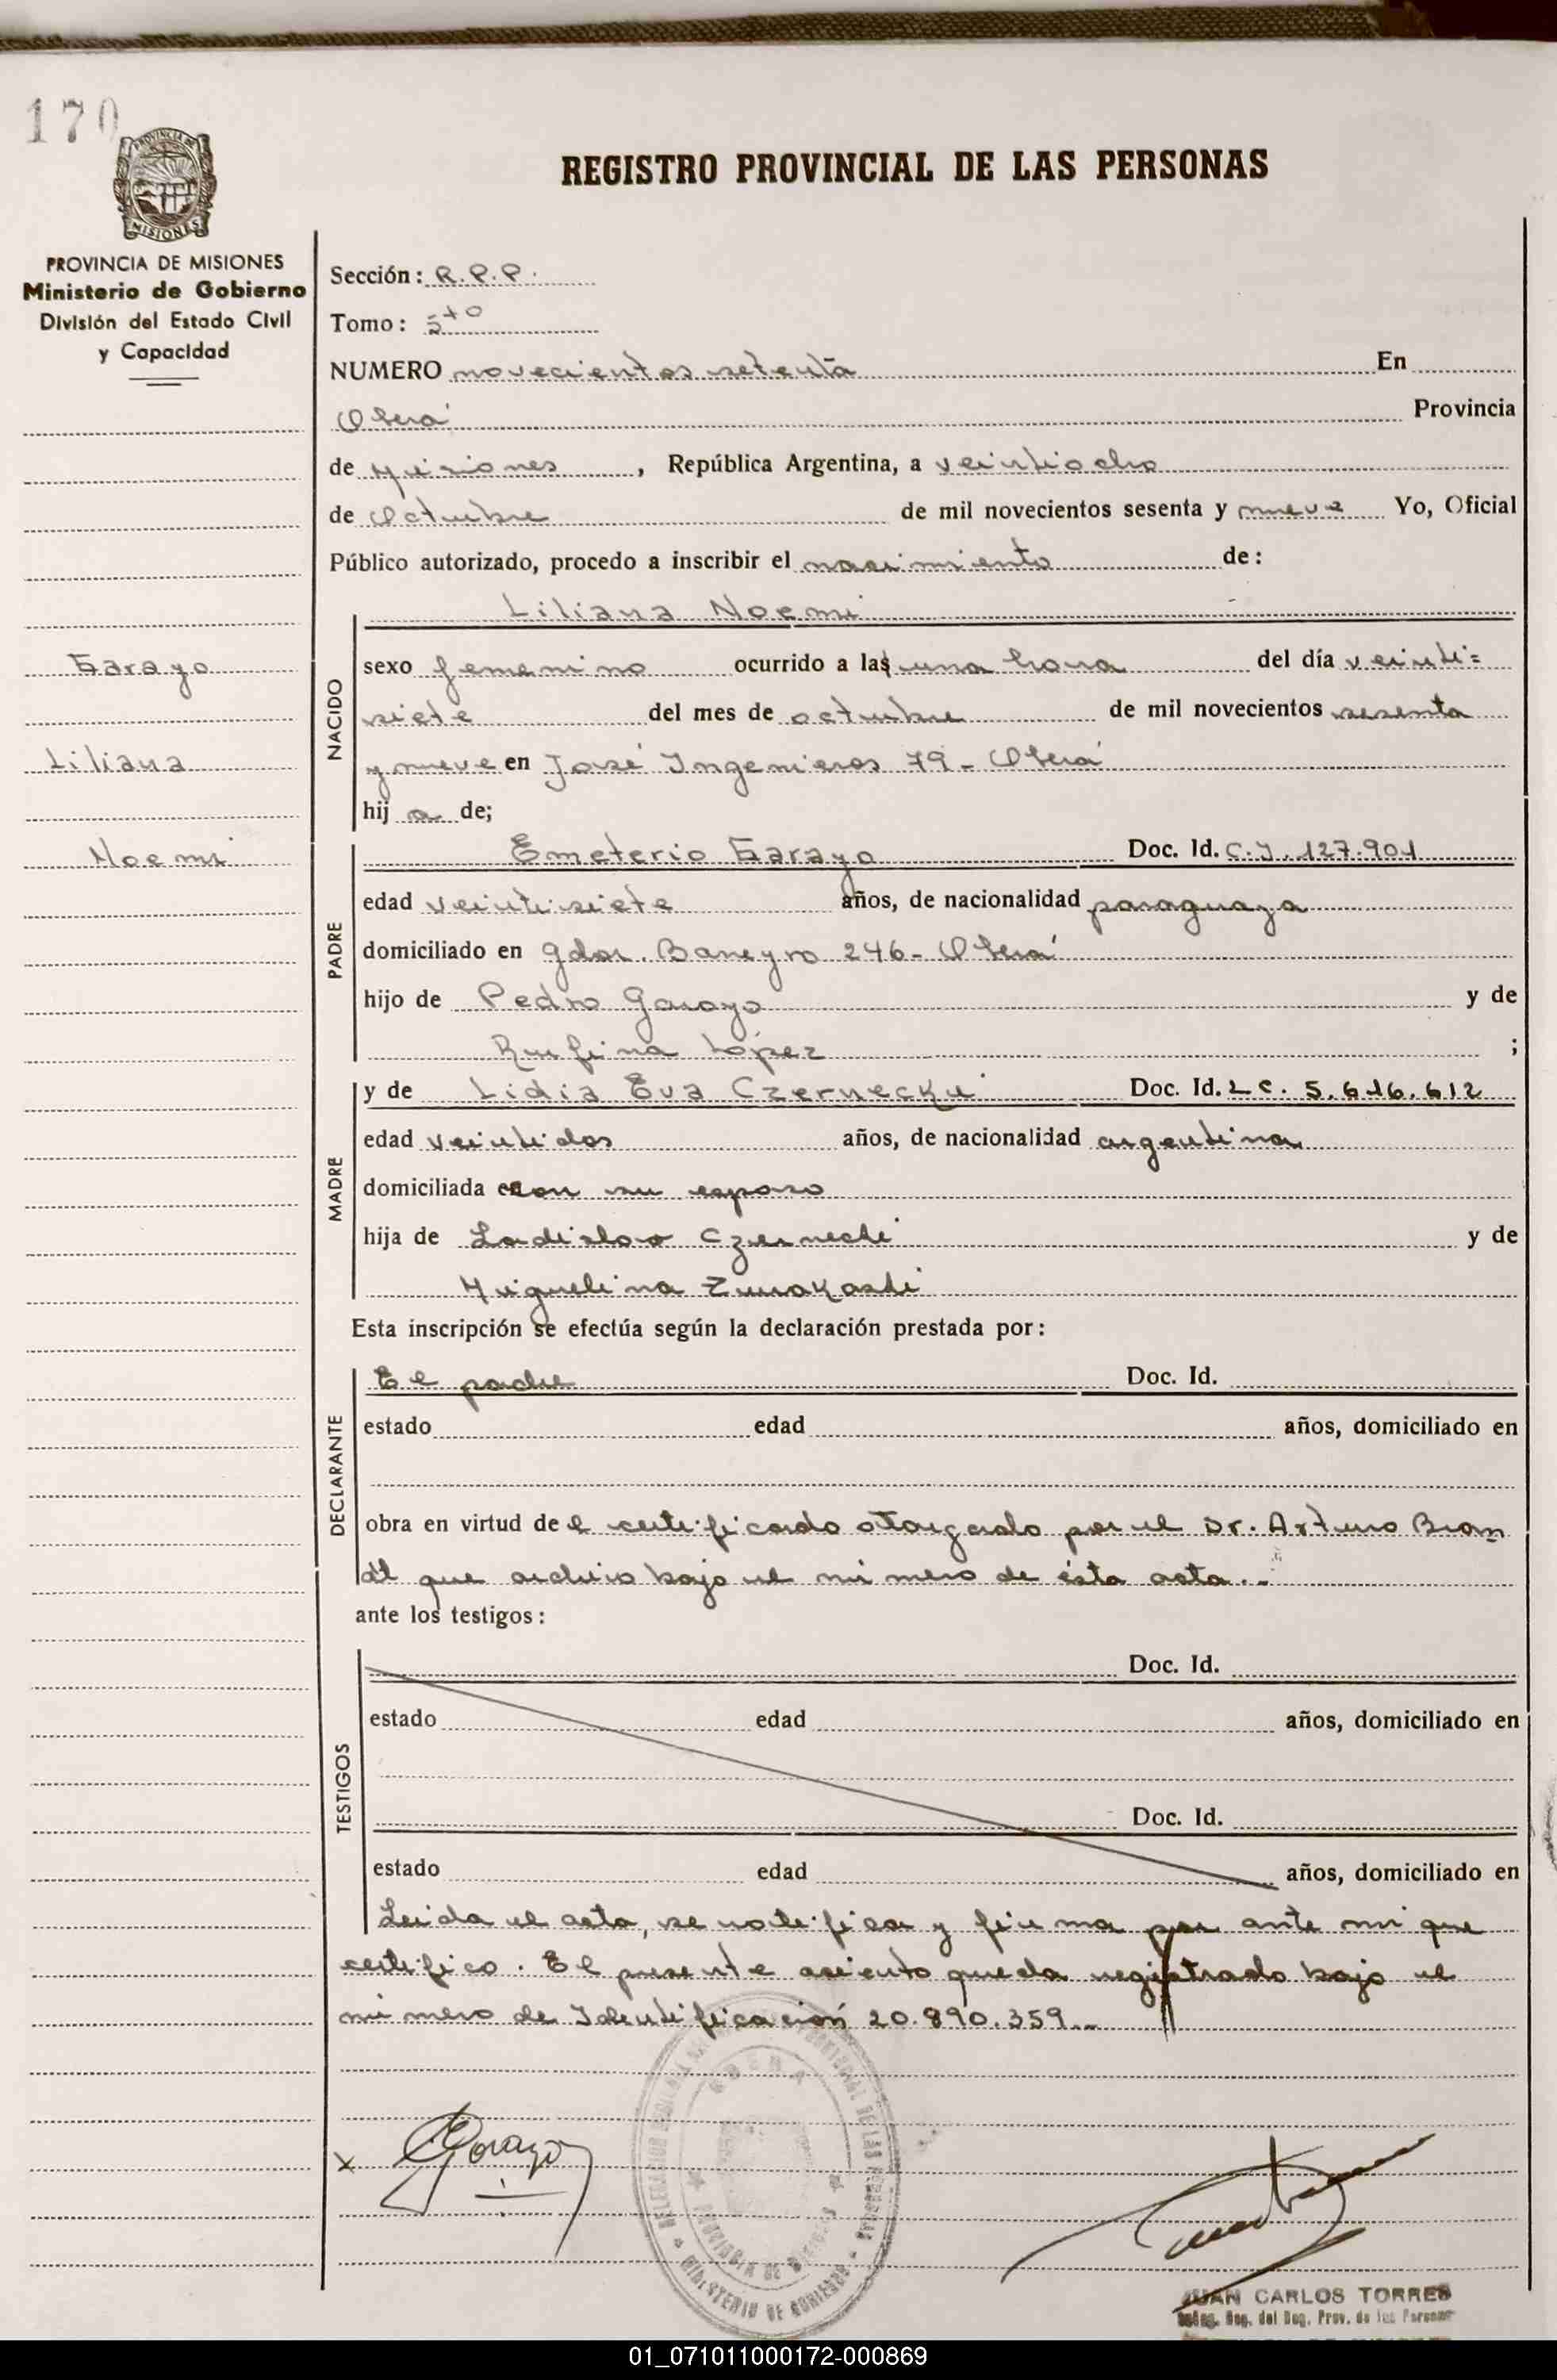 170
PROVINCIA DE
MISIONES
REGISTRO PROVINCIAL DE LAS PERSONAS
PROVINCIA DE MISIONES
Ministerio de Gobierno
División del Estado Civil
y Capacidad
Sección: R.P.P.
Tomo: 5to
NUMERO novecientos setenta En
Oberá Provincia
de Misiones, República Argentina, a veintiocho
de Octubre de mil novecientos sesenta y nueve Yo, Oficial
Público autorizado, procedo a inscribir el nacimiento de:
Garayo
Liliana
Noemi
NACIDO
Liliana Noemi
sexo femenino ocurrido a las una hora del día veinti=
siete del mes de octubre de mil novecientos sesenta
y nueve en José Ingenieros 79 - Oberá
hij a de;
PADRE
Emeterio Garayo Doc. Id. C.I. 127.901
edad veintisiete años, de nacionalidad paraguaya
domiciliado en Gdor. Bareyro 246 - Oberá
hijo de Pedro Garayo y de
Rufina López ;
MADRE
y de Lidia Eva Czernecki Doc. Id. L C. 5.616.612
edad veintidos años, de nacionalidad argentina
domiciliada con su esposo
hija de Ladislao Czernecki y de
Miguelina
Esta inscripción se efectúa según la declaración prestada por:
DECLARANTE
El padre Doc. Id.
estado edad años, domiciliado en
obra en virtud de el certificado otorgado por el Dr. Arturo Bran
dt que archivo bajo el número de ésta acta.-
ante los testigos:
TESTIGOS
Doc. Id.
estado edad años, domiciliado en
Doc. Id.
estado edad años, domiciliado en
Leida el acta, se notifica y firma por ante mi que
certifico. El presente asiento queda registrado bajo el
número de Identificación 20.890.359.-
x Garayo
PROVINCIA DE MISIONES
MINISTERIO DE GOBIERNO
JUAN CARLOS TORRES
del Reg. Prov. de las Personas
01_071011000172-000869